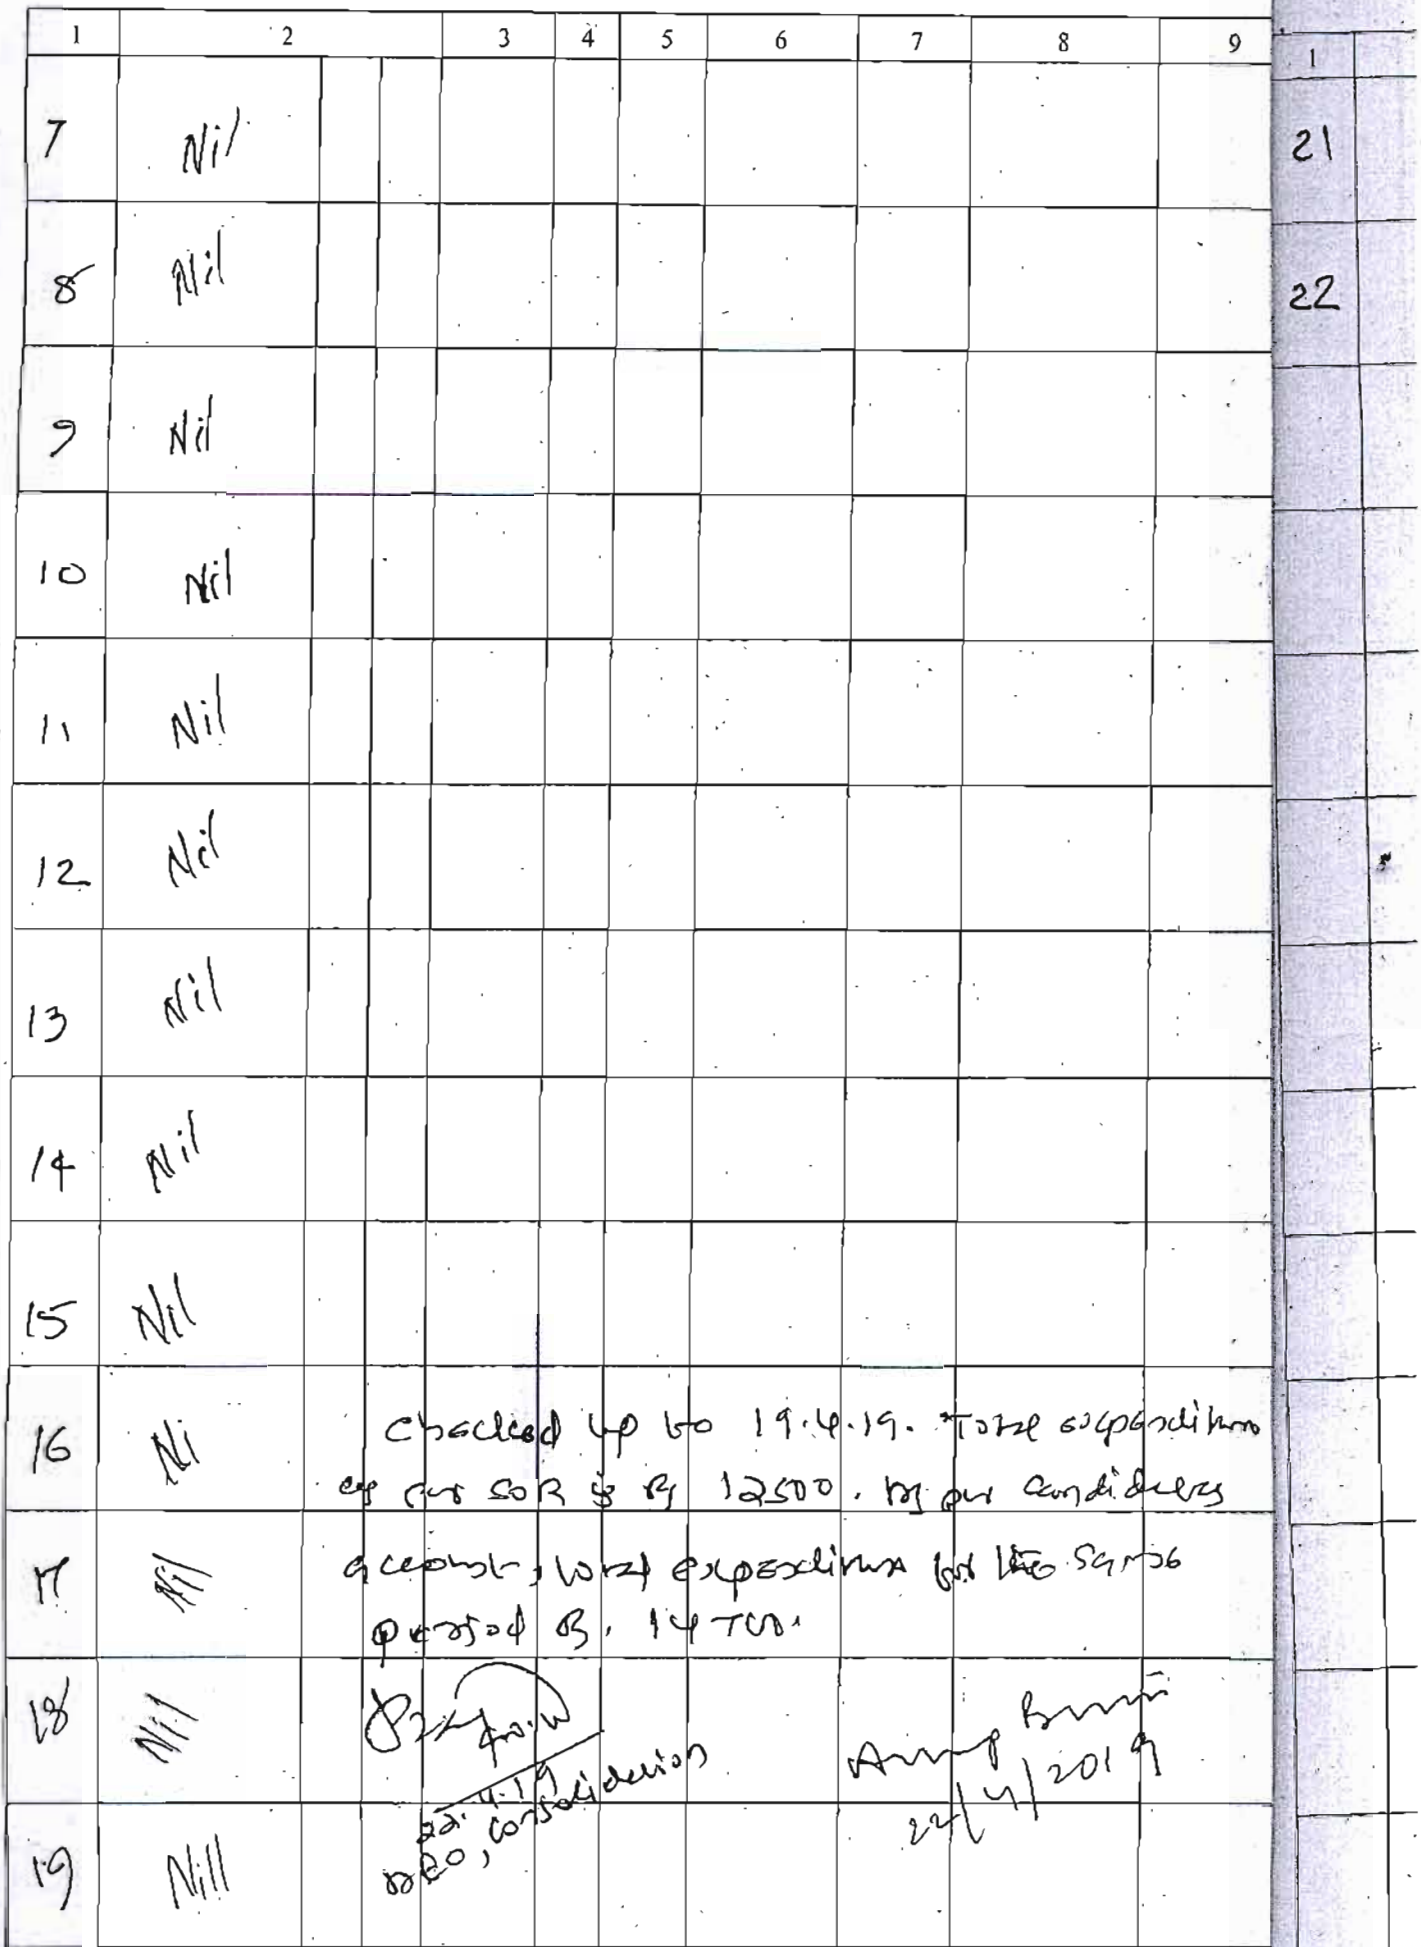 1 2 3 4 5 6 7 8 9
7 Nil
8 Nil
9 Nil
10 Nil
11 Nil
12 Nil
13 Nil
14 Nil
15 Nil
16 Ni
Checked up to 19.4.19. Total expenditure
as per SOR is Rs 12500. As per candidates
17 Nil
account, total expenditure for the same
period Rs. 14700.
18 Nil
22.4.19
consolidation
Anup
22/4/2019
19 Nill
1
21
22